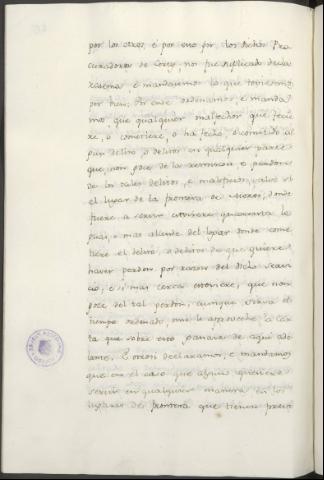 por los otros, é por ende por los dichos Pro
curadores de Cortes, nos fue suplicado declа
rasemos, é mandasemos lo que toviesemos
por bien; Por ende ordenamos, é manda
mos, que qualquier malfechor que ficie
re, o cometiere, o ha fecho, o cometido al
gun delito, o delitos en qualquier parte
que non goce de la remission, e perdones
de los tales delitos, e maleficios, salvo si
el lugar de la frontera de Moros, donde
fuere a servir estoviere quarenta le
guas, o mas allende del lugar donde come
tiere el delito, o delitos de que quisiere
haver perdon por razon del dicho servi
cio, e si mas cerca estoviere, que non
goce del tal perdon, aunque sirva el
tiempo ordenado, nin le aproveche la car
ta que sobre esto ganare de aqui ade
lante. E otrosi declaramos, e mandamos
que en el caso que alguno quisiere
servir en qualquier manera en los
lugares de frontera que tienen previ